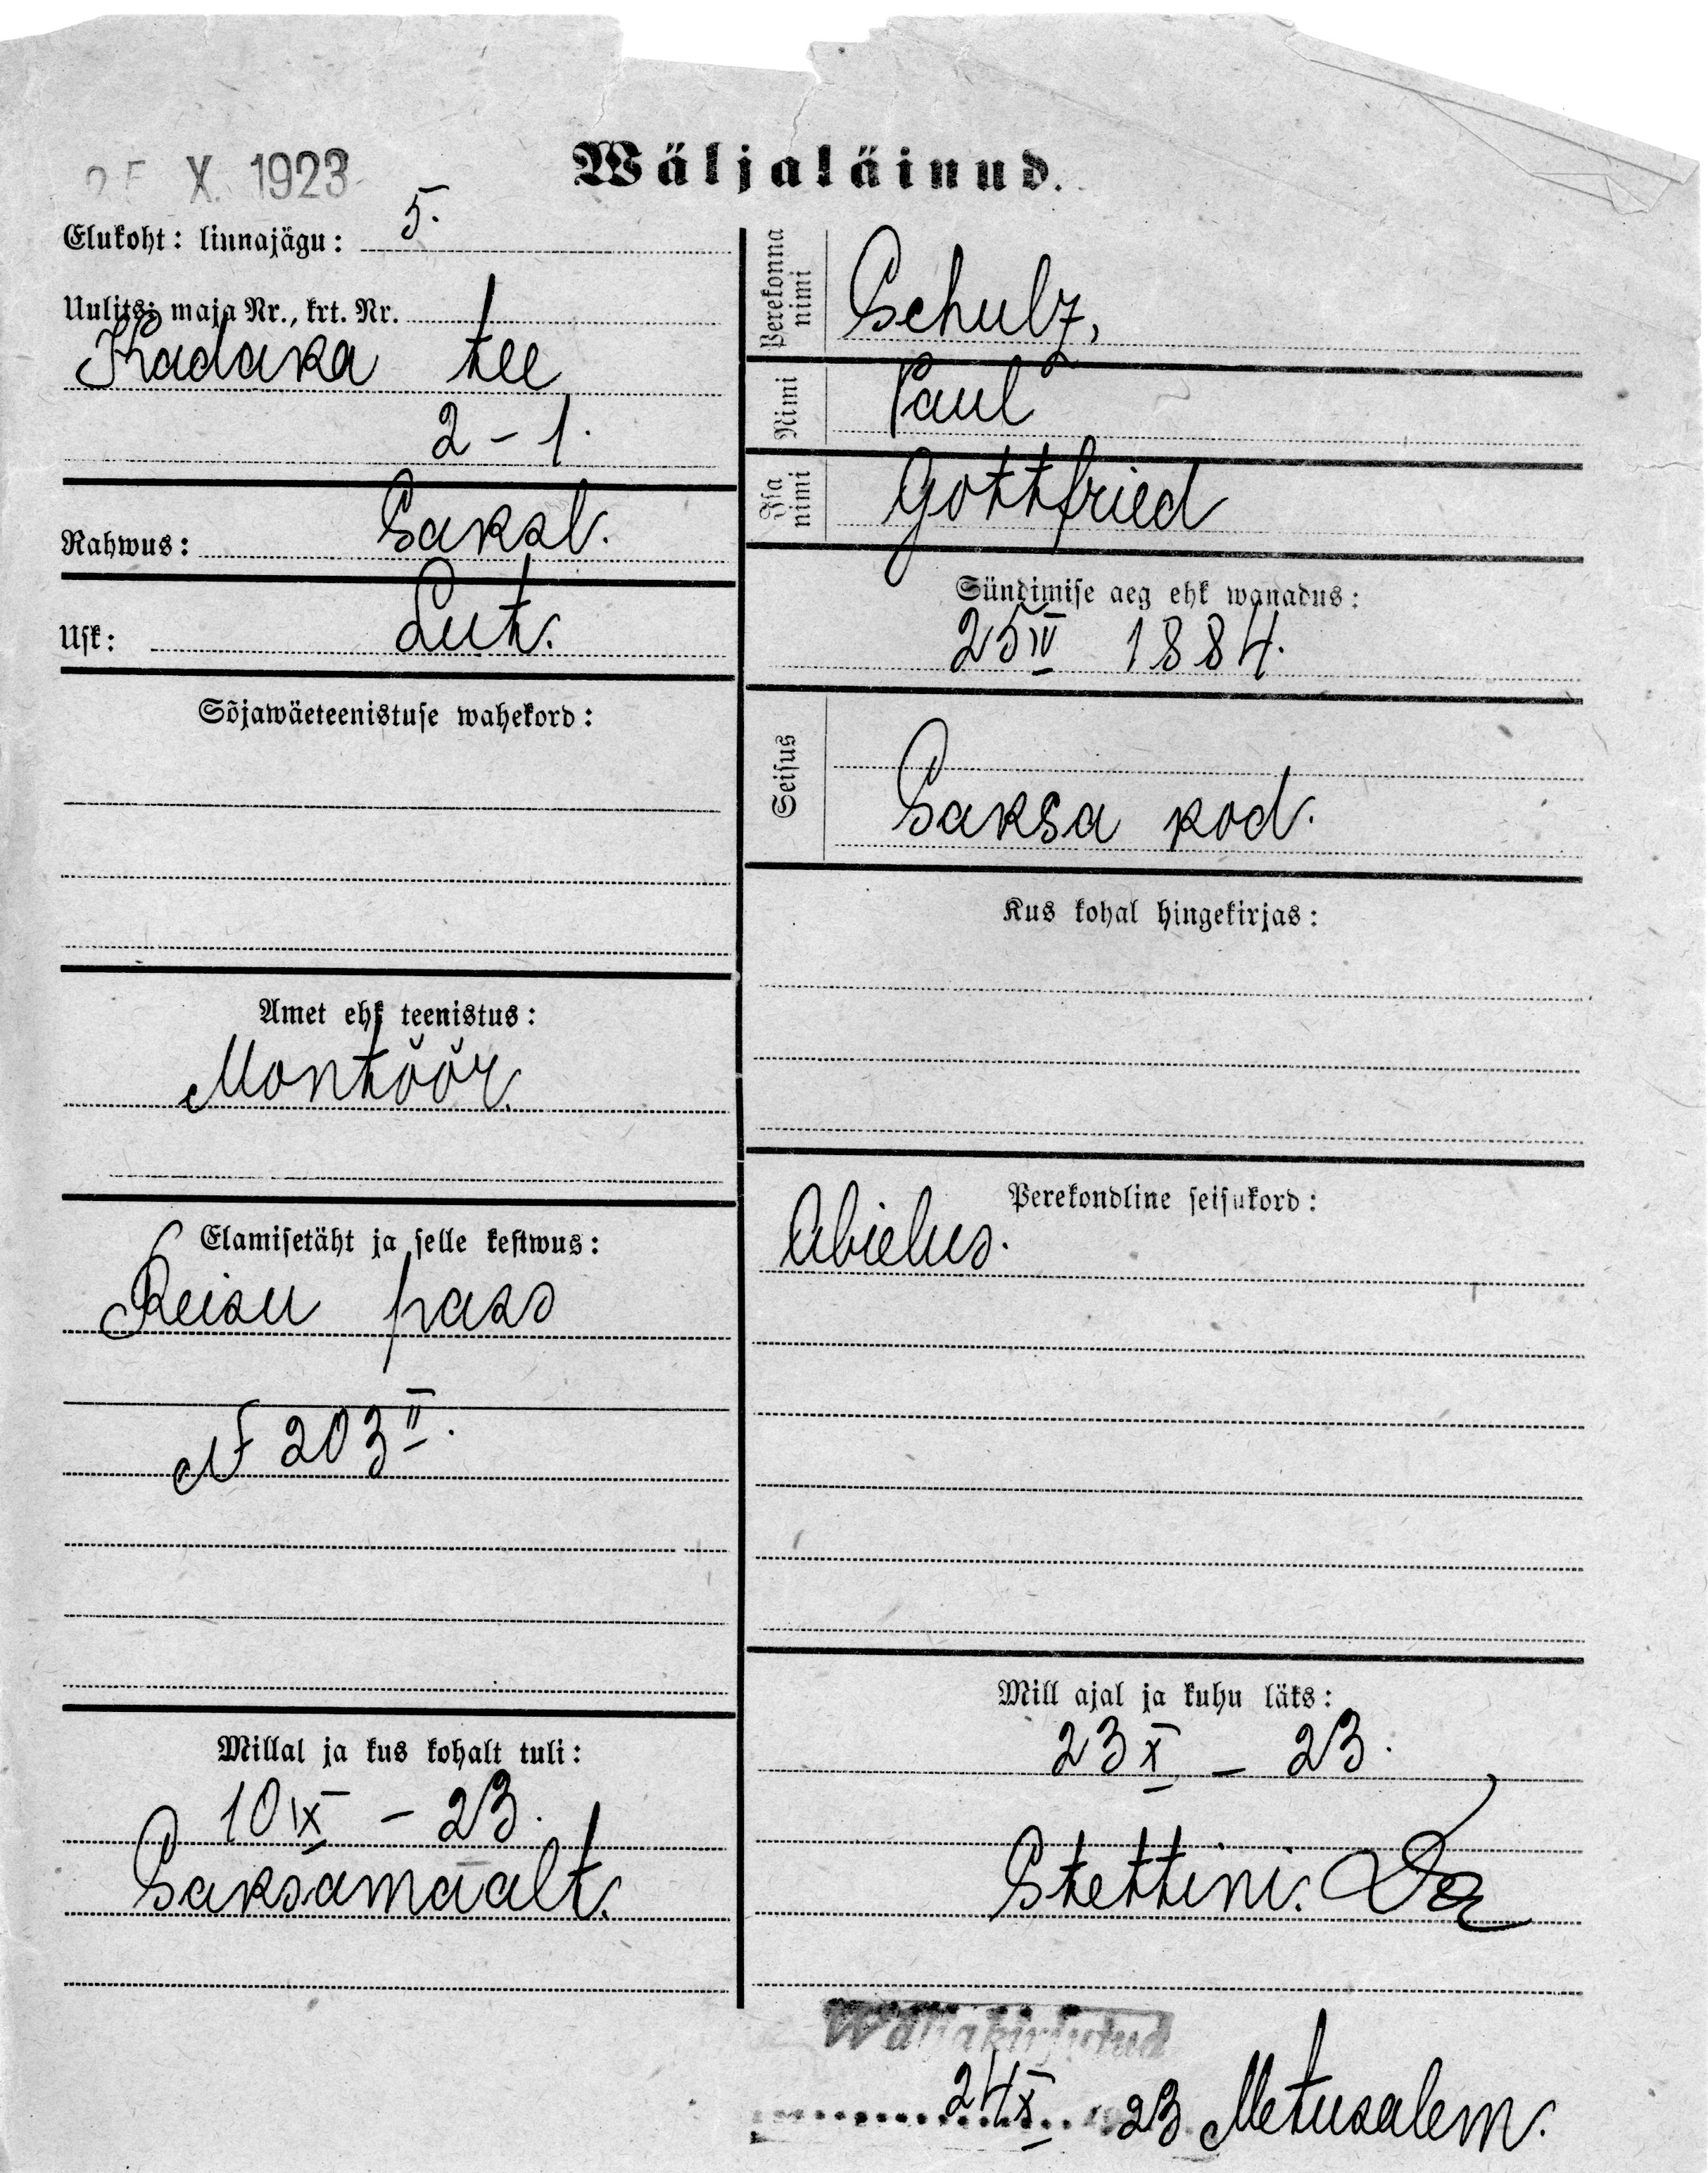 X. 1923
Wäljaläinud.
Elukoht: linnajägu: 5.
Uulits; maja Nr., krt. Nr.
Kadaka tee
2 - 1.
Rahwus: Saksl.
Usk: Lut.
Sõjawäeteenistuse wahekord:
Amet ehk teenistus:
Montöör.
Elamisetäht ja selle kestwus:
Reisu pass
№ 203 II.
Millal ja kus kohalt tuli:
10 IX - 23.
Saksamaalt.
Perekonna nimi
Schulz,
Nimi
Paul
Isa nimi
Gottfried
Sündimise aeg ehk wanadus:
25 IV 1884.
Seisus
Saksa kod.
Kus kohal hingekirjas:
Perekondline seisukord:
Abielus.
Mill ajal ja kuhu läks:
23 X - 23.
Stettini.
Wäljakirjutud
24 X 23 Metusalem.